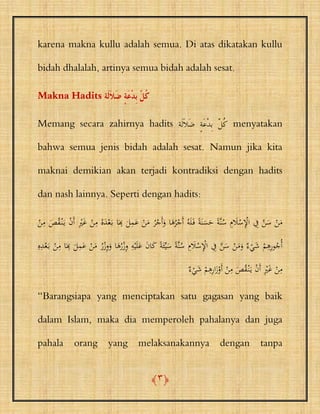 karena makna kullu adalah semua. Di atas dikatakan kullu
bidah dhalalah, artinya semua bidah adalah sesat.
Makna Hadits كُلّ بِدْعَةٍ ضَلَالَة
Memang secara zahirnya hadits كُلّ بِدْعَةٍ ضَلَالَة menyatakan
bahwa semua jenis bidah adalah sesat. Namun jika kita
maknai demikian akan terjadi kontradiksi dengan hadits
dan nash lainnya. Seperti dengan hadits:
مَنْ سَنَّ فِي الْإِسْلَامِ سُنَّةً حَسَنَةً فَلَهُ أَجْرُهَا وَأَجْرُ مَنْ عَمِلَ بِهَا بَعْدَهُ مِنْ غَيْرِ أَنْ يَنْقُصَ مِنْ
أُجُورِهِمْ شَيْءٌ وَمَنْ سَنَّ فِي الْإِسْلَامِ سُنَّةً سَيِّئَةً كَانَ عَلَيْهِ وِزْرُهَا وَوِزْرُ مَنْ عَمِلَ بِهَا مِنْ بَعْدِهِ
مِنْ غَيْرِ أَنْ يَنْقُصَ مِنْ أَوْزَارِهِمْ شَيْءٌ
“Barangsiapa yang menciptakan satu gagasan yang baik
dalam Islam, maka dia memperoleh pahalanya dan juga
pahala orang yang melaksanakannya dengan tanpa
﴿٣﴾